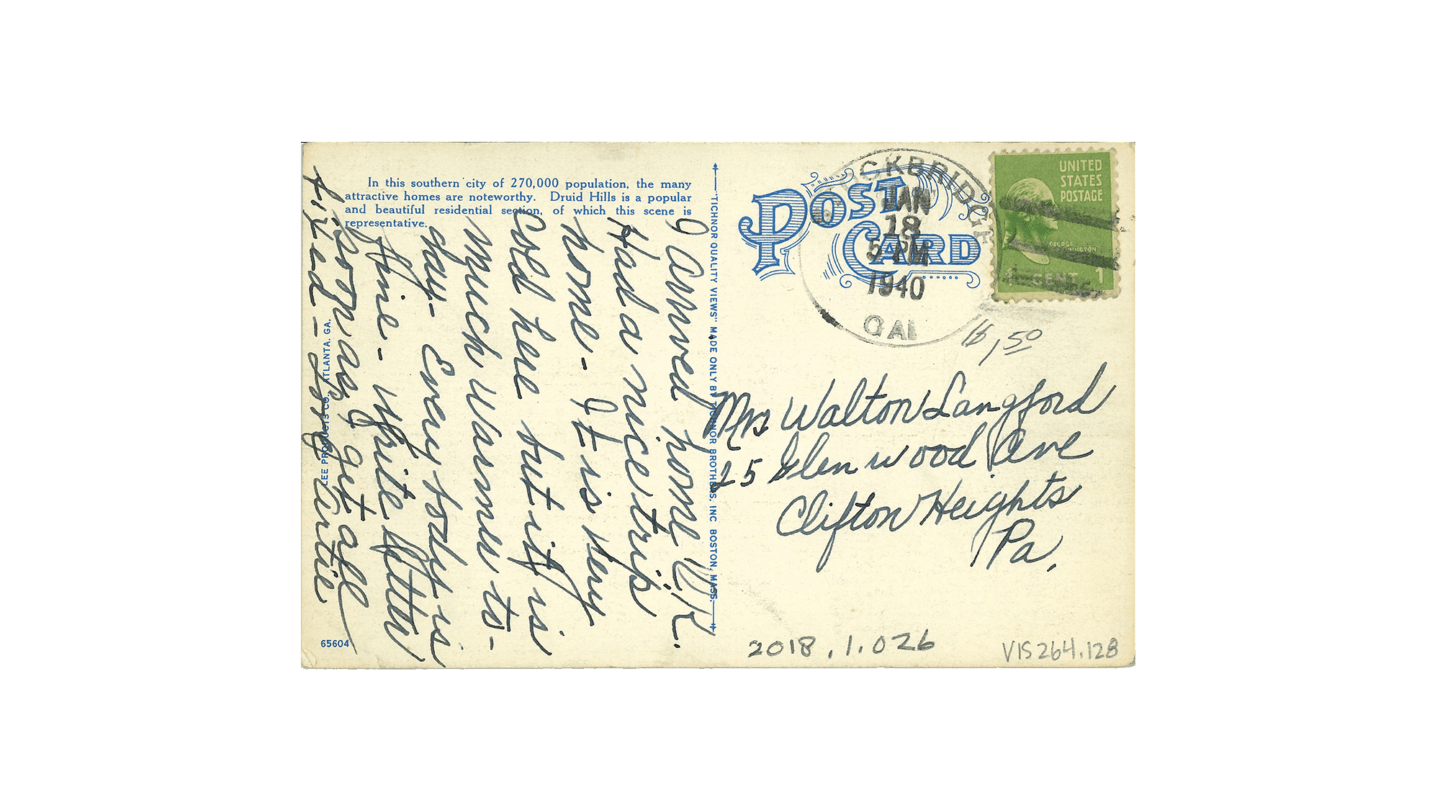 In this southern city of 270,000 population, the many
attractive homes are noteworthy. Druid Hills is a popular
and beautiful residential section, of which this scene is
representative.
I arrived home O.K.
Had a nice trip
home - It is very
cold here but it is
much warmer to-
day - Every body is
fine - Write Letter
soon as get all
fixed - Love
65604
LEE PRODUCTS CO., ATLANTA, GA.
"TICHNOR QUALITY VIEWS" MADE ONLY BY TICHNOR BROTHERS, INC BOSTON, MASS.
POST
CARD
OCKBRIDGE
JAN
18
5 PM
1940
GA
UNITED
STATES
POSTAGE
GEORGE
CENT 1
$1,50
Mrs Walton Langford
25 Glenwood Ave
Clifton Heights
Pa.
2018.1.026
VIS 264.128